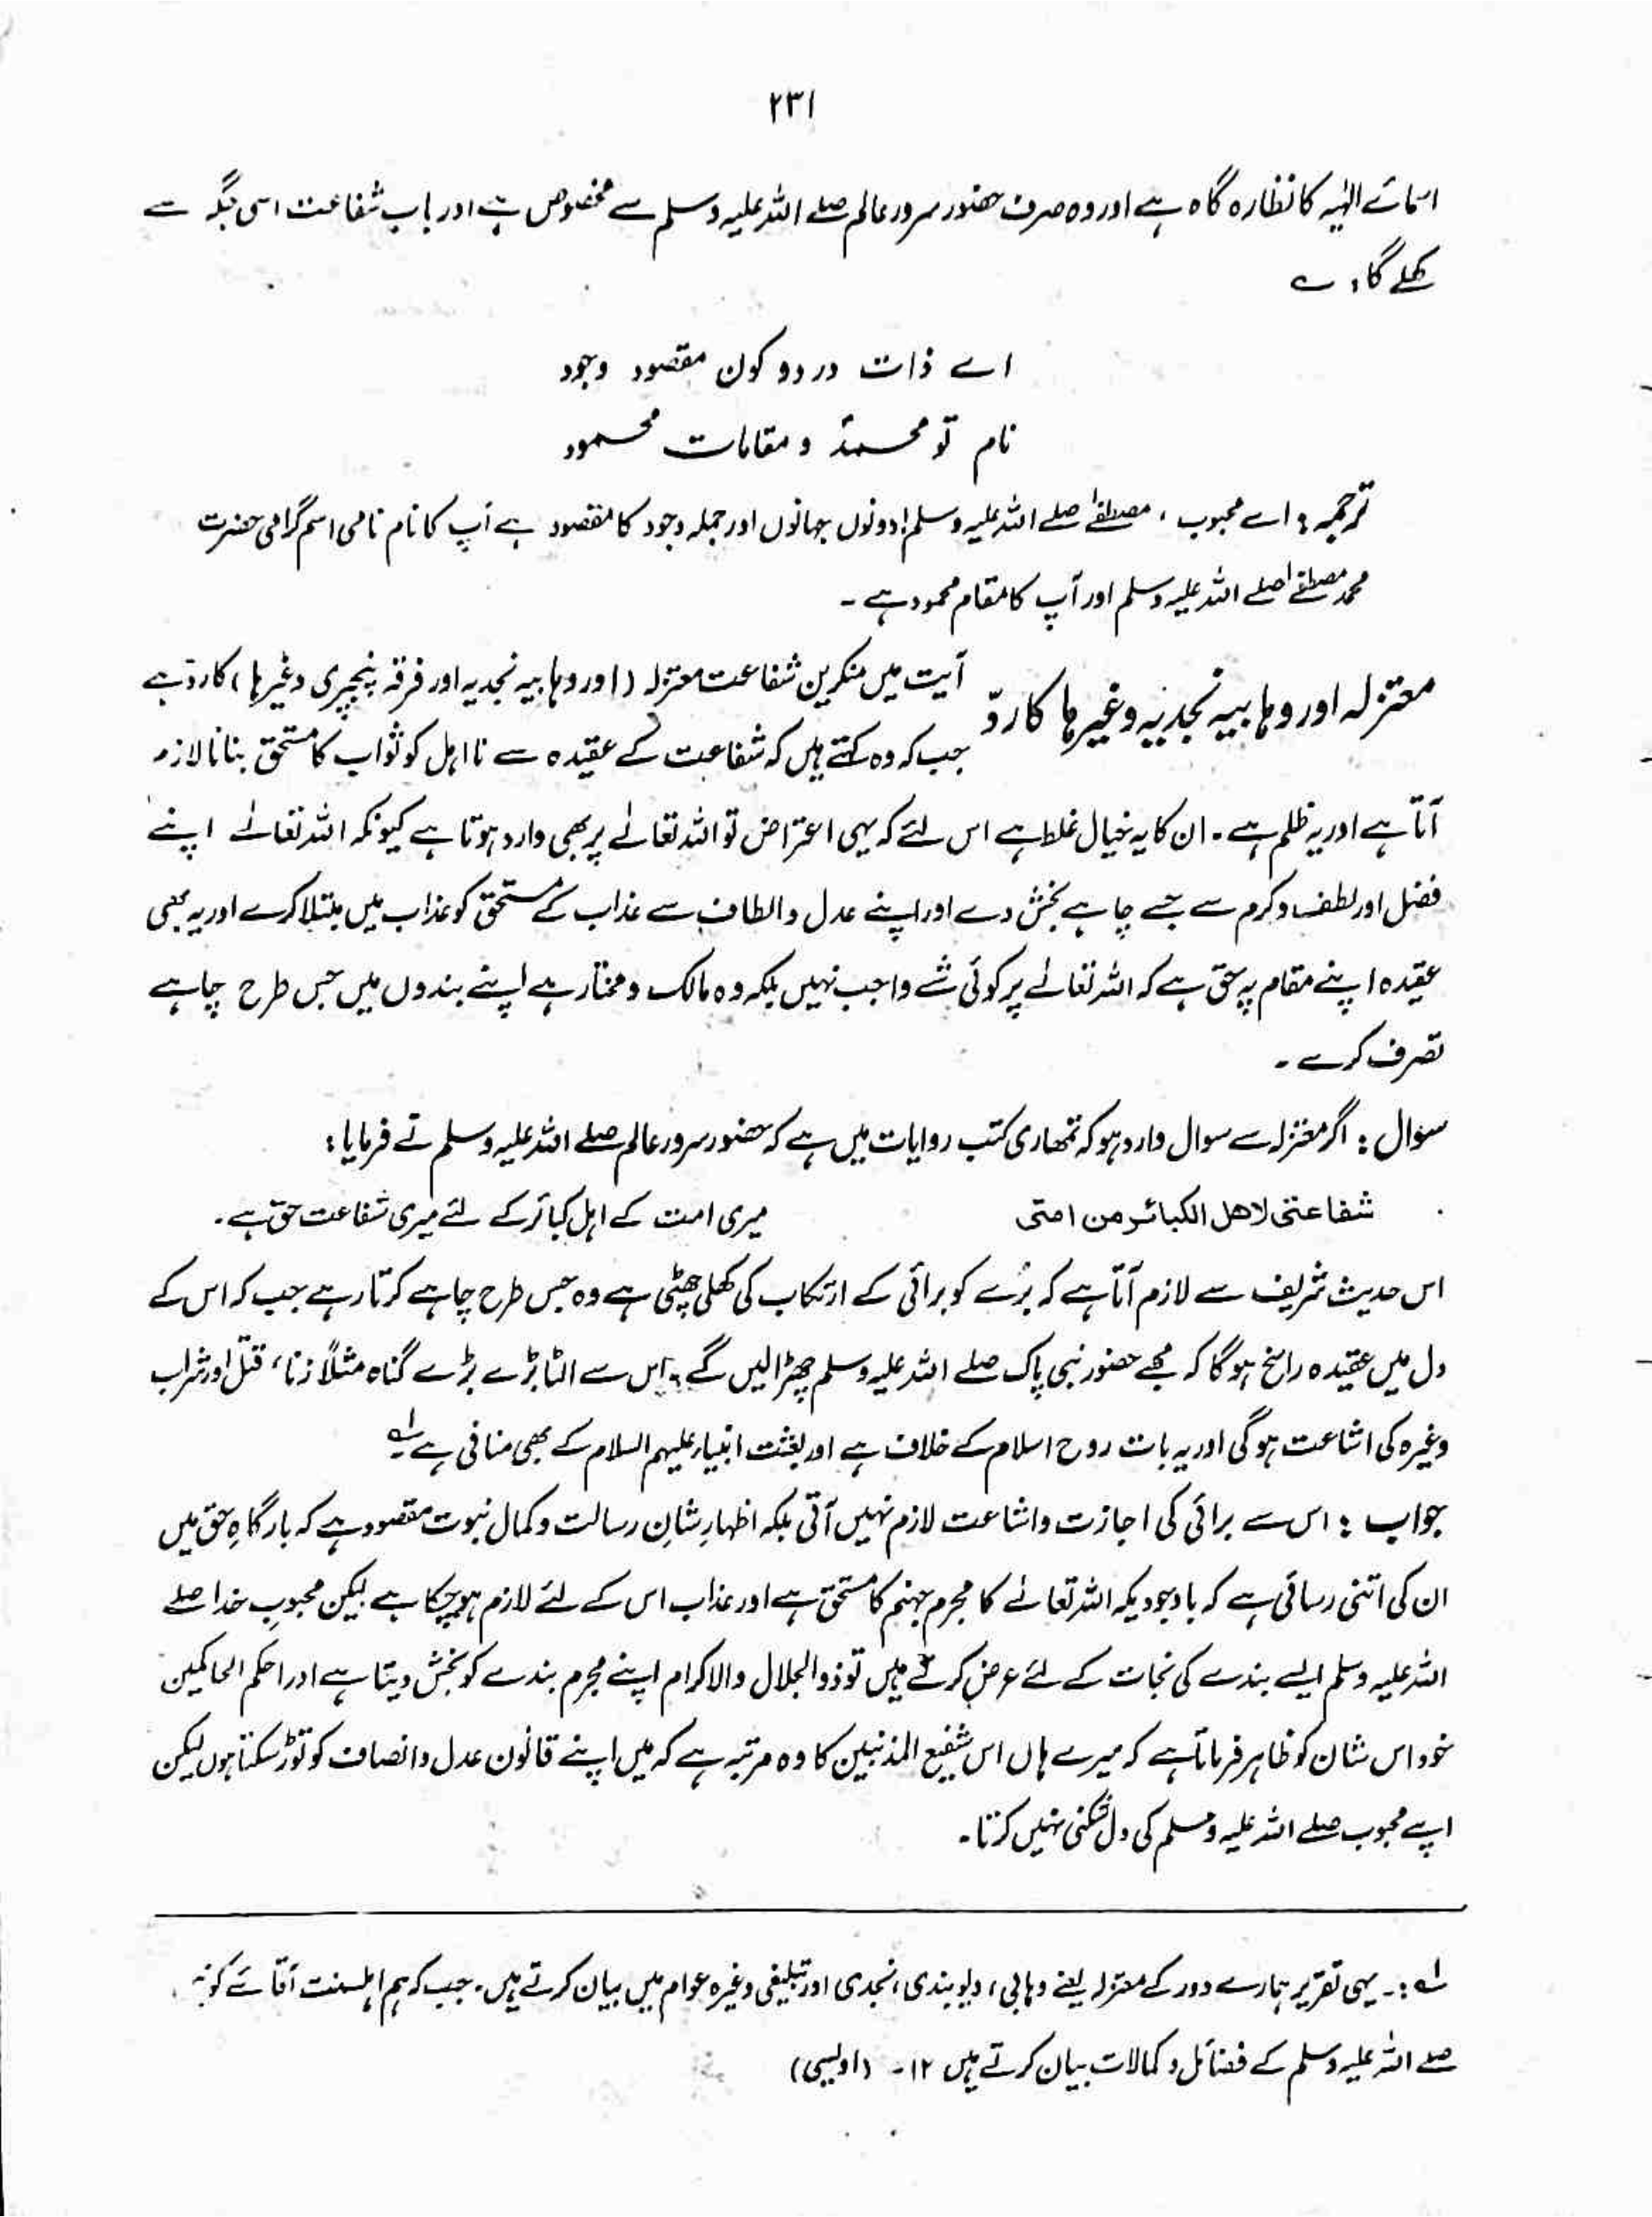 ۲۳۱
اسمائے الٰہیہ کا نظارہ گاہ ہے اور وہ صرف حضور سرور عالم صلے اللہ علیہ وسلم سے مخصوص ہے اور باب شفاعت اسی جگہ سے
کھلے گا، ے
اے ذات در دو کون مقصود وجود
نام تو محمدؐ و مقامات محمود
ترجمہ : اے محبوب ، مصطفےٰ صلے اللہ علیہ وسلم! دونوں جہانوں اور جملہ وجود کا مقصود ہے آپ کا نام نامی اسم گرامی حضرت
محمد مصطفےٰ صلے اللہ علیہ وسلم اور آپ کا مقام محمود ہے ۔
معتزلہ اور وہابیہ نجدیہ وغیرہا کا ردّ
آیت میں منکرین شفاعت معتزلہ (اور وہابیہ نجدیہ اور فرقہ نیچری وغیرہا) کا رد ہے
جب کہ وہ کہتے ہیں کہ شفاعت کے عقیدہ سے نااہل کو ثواب کا مستحق بنانا لازم
آتا ہے اور یہ ظلم ہے ۔ ان کا یہ خیال غلط ہے اس لئے کہ یہی اعتراض تو اللہ تعالےٰ پر بھی وارد ہوتا ہے کیونکہ اللہ تعالےٰ اپنے
فضل اور لطف و کرم سے جسے چاہے بخش دے اور اپنے عدل و الطاف سے عذاب کے مستحق کو عذاب میں مبتلا کرے اور یہ بھی
عقیدہ اپنے مقام پہ حق ہے کہ اللہ تعالےٰ پر کوئی شے واجب نہیں بلکہ وہ مالک و مختار ہے اپنے بندوں میں جس طرح چاہے
تصرف کرے ۔
سوال : اگر معتزلہ سے سوال وارد ہو کہ تمھاری کتب روایات میں ہے کہ حضور سرور عالم صلے اللہ علیہ وسلم نے فرمایا :
شفاعتی لاھل الکبائر من امتی میری امت کے اہل کبائر کے لئے میری شفاعت حق ہے ۔
اس حدیث شریف سے لازم آتا ہے کہ بُرے کو برائی کے ارتکاب کی کھلی چھٹی ہے وہ جس طرح چاہے کرتا رہے جب کہ اس کے
دل میں عقیدہ راسخ ہوگا کہ مجھے حضور نبی پاک صلے اللہ علیہ وسلم چھڑا لیں گے ۔ اس سے الٹا بڑے بڑے گناہ مثلاً زنا، قتل اور شراب
وغیرہ کی اشاعت ہوگی اور یہ بات روح اسلام کے خلاف ہے اور بعثت انبیاء علیہم السلام کے بھی منافی ہے ۱ے
جواب : اس سے برائی کی اجازت و اشاعت لازم نہیں آتی بلکہ اظہارِ شانِ رسالت و کمال نبوت مقصود ہے کہ بارگاہِ حق میں
ان کی اتنی رسائی ہے کہ باوجودیکہ اللہ تعالےٰ کا مجرم جہنم کا مستحق ہے اور عذاب اس کے لئے لازم ہوچکا ہے لیکن محبوبِ خدا صلے
اللہ علیہ وسلم ایسے بندے کی نجات کے لئے عرض کرتے ہیں تو ذوالجلال والاکرام اپنے مجرم بندے کو بخش دیتا ہے اور احکم الحاکمین
خود اس شان کو ظاہر فرماتا ہے کہ میرے ہاں اس شفیع المذنبین کا وہ مرتبہ ہے کہ میں اپنے قانون عدل و انصاف کو توڑ سکتا ہوں لیکن
اپنے محبوب صلے اللہ علیہ وسلم کی دل شکنی نہیں کرتا ۔
۱ے :۔ یہی تقریر ہمارے دور کے معتزلہ یعنے وہابی، دیوبندی، نجدی اور تبلیغی وغیرہ عوام میں بیان کرتے ہیں ۔ جب کہ ہم اہلسنت آقائے کونین
صلے اللہ علیہ وسلم کے فضائل و کمالات بیان کرتے ہیں ۱۲ ۔ (اویسی)